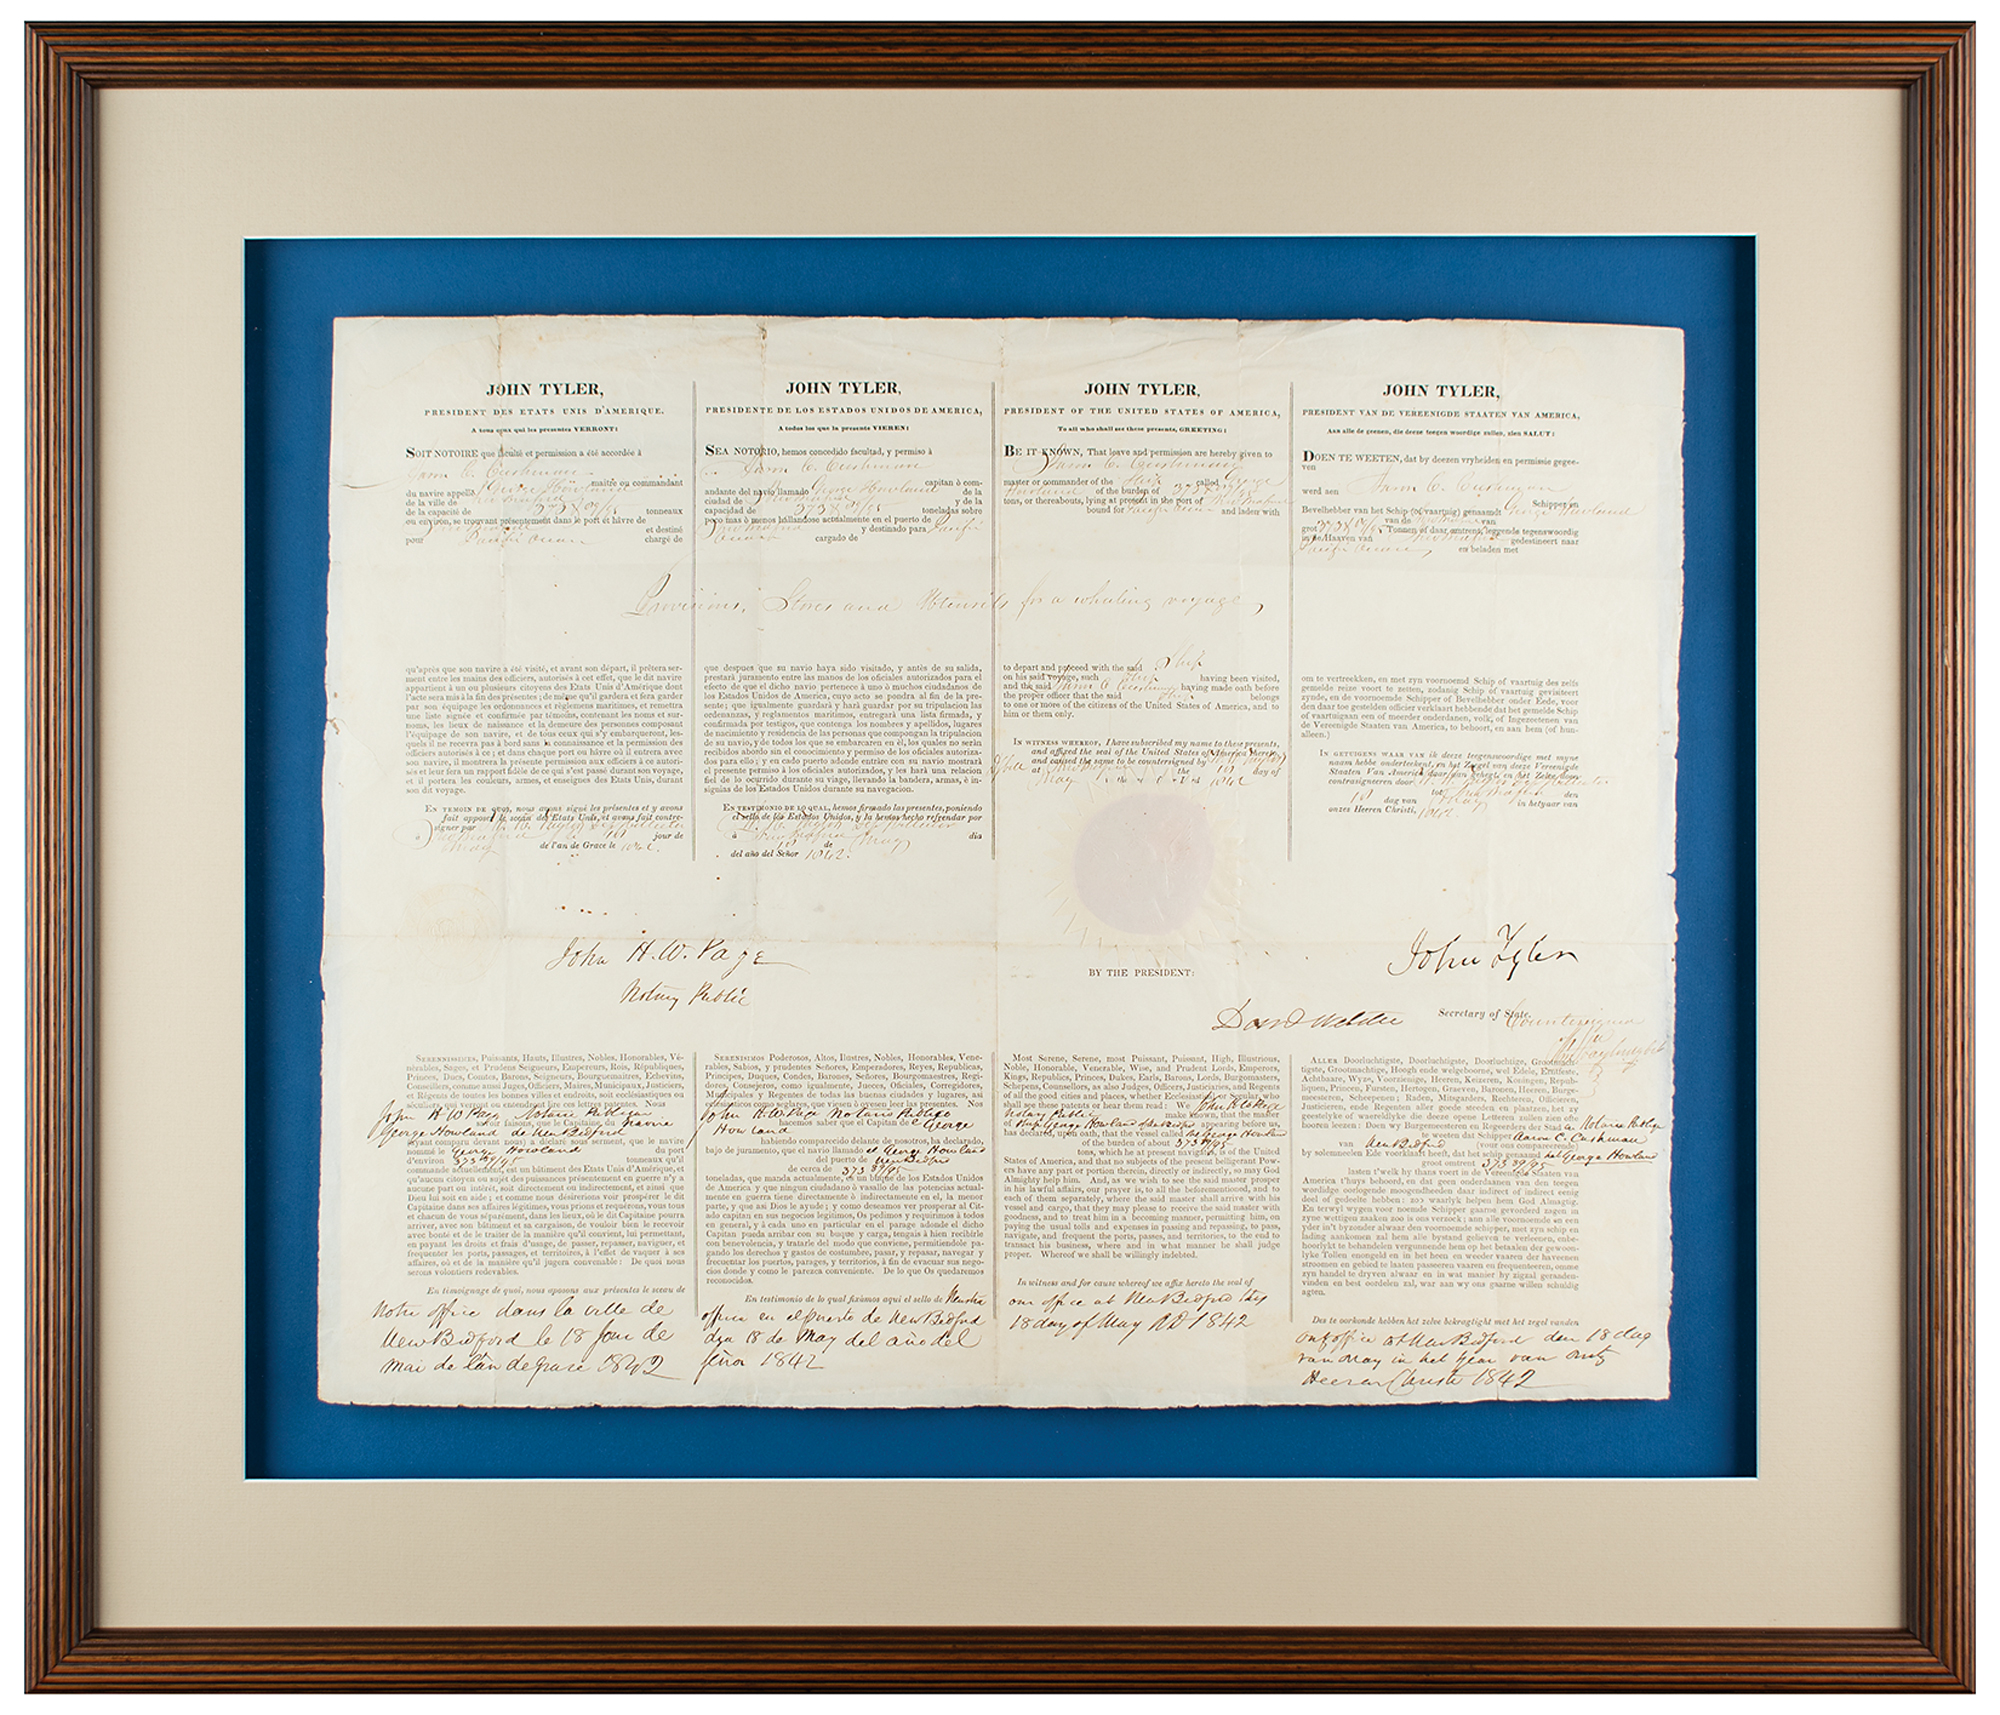 JOHN TYLER,
PRESIDENT DES ETATS UNIS D'AMERIQUE,
A tous ceux qui les presentes VERRONT:
SOIT NOTOIRE que faculté et permission a été accordée à
C. Cushman
maitre ou commandant
du navire appellé George Howland
de la ville de New Bedford
de la capacité de 373 & 89/95 tonneaux
ou environ, se trouvant présentement dans le port et hâvre de
New Bedford et destiné
pour Pacific Ocean chargé de
JOHN TYLER,
PRESIDENTE DE LOS ESTADOS UNIDOS DE AMERICA,
A todos los que la presente VIEREN:
SEA NOTORIO, hemos concedido facultad, y permiso à
C. Cushman
capitan ò com-
andante del navio llamado George Howland de la
ciudad de New Bedford y de la
capacidad de 373 & 89/95 toneladas sobre
poco mas ò menos hallandose actualmente en el puerto de
New Bedford y destinado para Pacific
Ocean cargado de
JOHN TYLER,
PRESIDENT OF THE UNITED STATES OF AMERICA,
To all who shall see these presents, GREETING:
BE IT KNOWN, That leave and permission are hereby given to
C. Cushman
master or commander of the Ship called George
Howland of the burden of 373 & 89/95
tons, or thereabouts, lying at present in the port of New Bedford
bound for Pacific Ocean and laden with
JOHN TYLER,
PRESIDENT VAN DE VEREENIGDE STAATEN VAN AMERICA,
Aan alle de geenen, die deeze teegen woordige zullen, zien SALUT:
DOEN TE WEETEN, dat by deezen vryheiden en permissie gegee-
ven
werd aen C. Cushman
Schipper en
Bevelhebber van het Schip (of vaartuig) genaamdt George Howland
van de New Bedford van
grot 373 & 89/95 Tonnen of daar, omtrent, leggende tegenswoordig
in de Haaven van New Bedford gedestineert naar
Pacific Ocean en beladen met
Provisions, Stores and Utensils for a whaling voyage,
qu'après que son navire a été visité, et avant son départ, il prêtera ser-
ment entre les mains des officiers, autorisés à cet effet, que le dit navire
appartient à un ou plusieurs citoyens des Etats Unis d'Amérique dont
l'acte sera mis à la fin des présentes; de même qu'il gardera et fera garder
par son équipage les ordonnances et règlemens maritimes, et remettra
une liste signée et confirmée par témoins, contenant les noms et sur-
noms, les lieux de naissance et la demeure des personnes composant
l'équipage de son navire, et de tous ceux qui s'y embarqueront, les-
quels il ne recevra pas à bord sans la connaissance et la permission des
officiers autorisés à ce; et dans chaque port ou hâvre où il entrera avec
son navire, il montrera la présente permission aux officiers à ce autori-
sés et leur fera un rapport fidèle de ce qui s'est passé durant son voyage,
et il portera les couleurs, armes, et enseignes des Etats Unis, durant
son dit voyage.
EN TEMOIN DE QUOI, nous avons signé les présentes et y avons
fait apposer le sceau des Etats Unis, et avons fait contre-
signer par
New Bedford jour de
May de l'an de Grace le 1842.
que despues que su navio haya sido visitado, y antès de su salida,
prestará juramento entre las manos de los oficiales autorizados para el
efecto de que el dicho navio pertenece à uno ò muchos ciudadanos de
los Estados Unidos de America, cuyo acto se pondra al fin de la pre-
sente; que igualmente guardará y hará guardar por su tripulacion las
ordenanzas, y reglamentos maritimos, entregará una lista firmada, y
confirmada por testigos, que contenga los nombres y apellidos, lugares
de nacimiento y residencia de las personas que compongan la tripulacion
de su navio, y de todos los que se embarcaren en èl, los quales no seràn
recibidos abordo sin el conocimiento y permiso de los oficiales autoriza-
dos para ello; y en cado puerto adonde entràre con su navio mostrará
el presente permiso à los oficiales autorizados, y les hará una relacion
fiel de lo ocurrido durante su viage, llevando la bandera, armas, è in-
signias de los Estados Unidos durante su navegacion.
EN TESTIMONIO DE LO QUAL, hemos firmado las presentes, poniendo
el sello de los Estados Unidos, y la hemos hecho refrendar por
à New Bedford dia
de May
del año del Señor 1842.
to depart and proceed with the said Ship
on his said voyage, such Ship having been visited,
and the said C. Cushman having made oath before
the proper officer that the said Ship belongs
to one or more of the citizens of the United States of America, and to
him or them only.
IN WITNESS WHEREOF, I have subscribed my name to these presents,
and affixed the seal of the United States of America thereto,
and caused the same to be countersigned by
at New Bedford the day of
May 1842
om te vertreekken, en met zyn voornoemd Schip of vaartuig des zelfs
gemelde reize voort te zetten, zodanig Schip of vaartuig gevisiteert
zynde, en de voornoemde Schipper of Bevelhebber onder Eede, voor
den daar toe gestelden officier verklaart hebbende dat het gemelde Schip
of vaartuigaan een of meerder onderdanen, volk, of Ingezeetenen van
de Vereenigde Staaten van America, te behoort, en aan hem (of hun-
alleen.)
IN GETUIGENS WAAR VAN ik deeze teegenswoordige met myne
naam hebbe ondertekent, en het Zeegel van deeze Vereenigde
Staaten Van America daar aan gehegt, en het Zelve door
contrasigneeren door
tot New Bedford den
dag van May in hetyaar van
onzes Heeren Christi, 1842.
John H. W. Page
Notary Public
BY THE PRESIDENT:
John Tyler
Danl Webster Secretary of State.
Countersigned
SERENNISSIMES, Puissants, Hauts, Illustres, Nobles, Honorables, Vé-
nérables, Sages, et Prudens Seigneurs, Empereurs, Rois, Républiques,
Princes, Ducs, Comtes, Barons, Seigneurs, Bourguemaitres, Echevins,
Conseillers, comme aussi Juges, Officiers, Maires, Municipaux, Justiciers,
et Régents de toutes les bonnes villes et endroits, soit ecclésiastiques ou
séculiers, qui verront ou entendront lire ces lettres patentes. Nous
John H W Page Notaire Publique
savoir faisons, que le Capitaine, du Navire
George Howland de New Bedford
(ayant comparu devant nous) a déclaré sous serment, que le navire
nommé le George Howland du port
d'environ 373 89/95 tonneaux qu'il
commande actuellement, est un bâtiment des Etats Unis d'Amérique, et
qu'aucun citoyen ou sujet des puissances présentement en guerre n'y a
aucune part ou intérêt, soit directement ou indirectement, et ainsi que
Dieu lui soit en aide; et comme nous désirerions voir prospérer le dit
Capitaine dans ses affaires légitimes, vous prions et requérons, vous tous
et chacun de vous séparément, dans les lieux, où le dit Capitaine pourra
arriver, avec son bâtiment et sa cargaison, de vouloir bien le recevoir
avec bonté et de le traiter de la manière qu'il convient, lui permettant,
en payant les droits et frais d'usage, de passer, repasser, naviguer, et
fréquenter les ports, passages, et territoires, à l'effet de vaquer à ses
affaires, où et de la manière qu'il jugera convenable: De quoi nous
serons volontiers redevables.
En témoignage de quoi, nous aposons aux présentes le sceau de
Notre office dans la ville de
New Bedford le 18 Jour de
Mai de l'an de grace 1842
SERENISIMOS Poderosos, Altos, Ilustres, Nobles, Honorables, Vene-
rables, Sabios, y prudentes Señores, Emperadores, Reyes, Republicas,
Principes, Duques, Condes, Barones, Señores, Burgomaestres, Regi-
dores, Consejeros, como igualmente, Jueces, Oficiales, Corregidores,
Municipales y Regentes de todas las buenas ciudades y lugares, asi
eclesiasticos como seglares, que viesen ò oyesen leer las presentes. Nos
John H. W. Page Notario Publigo
hacemos saber que el Capitan de George
Howland
habiendo comparecido delante de nosotros, ha declarado,
bajo de juramento, que el navio llamado el George Howland
del puerto de New Bedford
de cerca de 373 89/95
toneladas, que manda actualmente, es un buque de los Estados Unidos
de America y que ningun ciudadano ò vasallo de las potencias actual-
mente en guerra tiene directamente ò indirectamente en el, la menor
parte, y que asi Dios le ayude; y como deseamos ver prosperar al Cit-
ado capitan en sus negocios legitimos, Os pedimos y requirimos à todos
en general, y à cada uno en particular en el parage adonde el dicho
Capitan pueda arribar con su buque y carga, tengais à bien recibirle
con benevolencia, y tratarle del modo que conviene, permitiendole pa-
gando los derechos y gastos de costumbre, pasar, y repasar, navegar y
frecuentar los puertos, parages, y territorios, à fin de evacuar sus nego-
cios donde y como le parezca conveniente. De lo que Os quedaremos
reconocidos.
En testimonio de lo qual fixàmos aqui el sello de Nuestra
office en el puerto de New Bedford
dya 18 de May del año del
Señor 1842
Most Serene, Serene, most Puissant, Puissant, High, Illustrious,
Noble, Honorable, Venerable, Wise, and Prudent Lords, Emperors,
Kings, Republics, Princes, Dukes, Earls, Barons, Lords, Burgomasters,
Schepens, Counsellors, as also Judges, Officers, Justiciaries, and Regents
of all the good cities and places, whether Ecclesiastical or Secular, who
shall see these patents or hear them read: We John H W Page
Notary Public make known, that the master
of Ship George Howland of New Bedford appearing before us,
has declared, upon oath, that the vessel called the George Howland
of the burden of about 373 89/95
tons, which he at present navigates, is of the United
States of America, and that no subjects of the present belligerant Pow-
ers have any part or portion therein, directly or indirectly, so may God
Almighty help him. And, as we wish to see the said master prosper
in his lawful affairs, our prayer is, to all the beforementioned, and to
each of them separately, where the said master shall arrive with his
vessel and cargo, that they may please to receive the said master with
goodness, and to treat him in a becoming manner, permitting him, on
paying the usual tolls and expenses in passing and repassing, to pass,
navigate, and frequent the ports, passes, and territories, to the end to
transact his business, where and in what manner he shall judge
proper. Whereof we shall be willingly indebted.
In witness and for cause whereof we affix hereto the seal of
our office at New Bedford this
18 day of May AD 1842
ALLES Doorluchtigste, Doorluchtigste, Doorluchtige, Grootmach-
tigste, Grootmachtige, Hoogh ende welgeboorne, wel Edele, Erntfeste,
Achtbaare, Wyze, Voorzienige, Heeren, Keizeren, Koningen, Repub-
liquen, Princen, Fursten, Hertogen, Graeven, Baronen, Heeren, Burge-
meesteren, Scheepenen; Raden, Mitsgarders, Rechteren, Officieren,
Justicieren, ende Regenten aller goede streeden en plaatsen, het zy
geestelyke of waereldlyke die deeze opene Letteren zullen zien ofte
hooren leezen: Doen wy Burgemeesteren en Regeerders der Stad Notaris Publigo
te weeten dat Schipper Aaron C. Cushman
van New Bedford (voor ons compareerende)
by solemneelen Ede voorklaart heeft, dat het schip genaamd het George Howland
groot omtrent 373 89/95
lasten t'welk hy thans voert in de Vereenigde Staaten van
America t'huys behoord, en dat geen onderdaanen van den teegen
wordige oorlogende moogendheeden daar indirect of indirect eenig
deel of gedeelte hebben: zoo waarlyk helpen hem God Almagtig.
En terwyl wygen voor noemde Schipper gaarne gevorderd zagen in
zyne wettigen zaaken zoo is ons verzock; ann alle voornoemde en een
yder in't byzonder alwaar den voornoemde schipper, met zyn schip en
lading aankomen zal hem alle bystand gelieven te verleenen, enbe-
hoorlykt te behandelen vergunneende hem op het betaalen der gewoon-
lyke Tollen enongeld en in het hem en weeder vaaren der haveenen
stroomen en gebied te laaten passeeren vaaren en frequenteeren, omme
zyn handel te dryven alwaar en in wat manier hy zigzal geraaden-
vinden en best oordelen zal, war aan wy ons gaarne willen schuldig
agten.
Des te oorkonde hebben het zelve bekragtigt met het zegel vanden
office at New Bedford den 18 dag
van May in het year van
Heeren Christi 1842